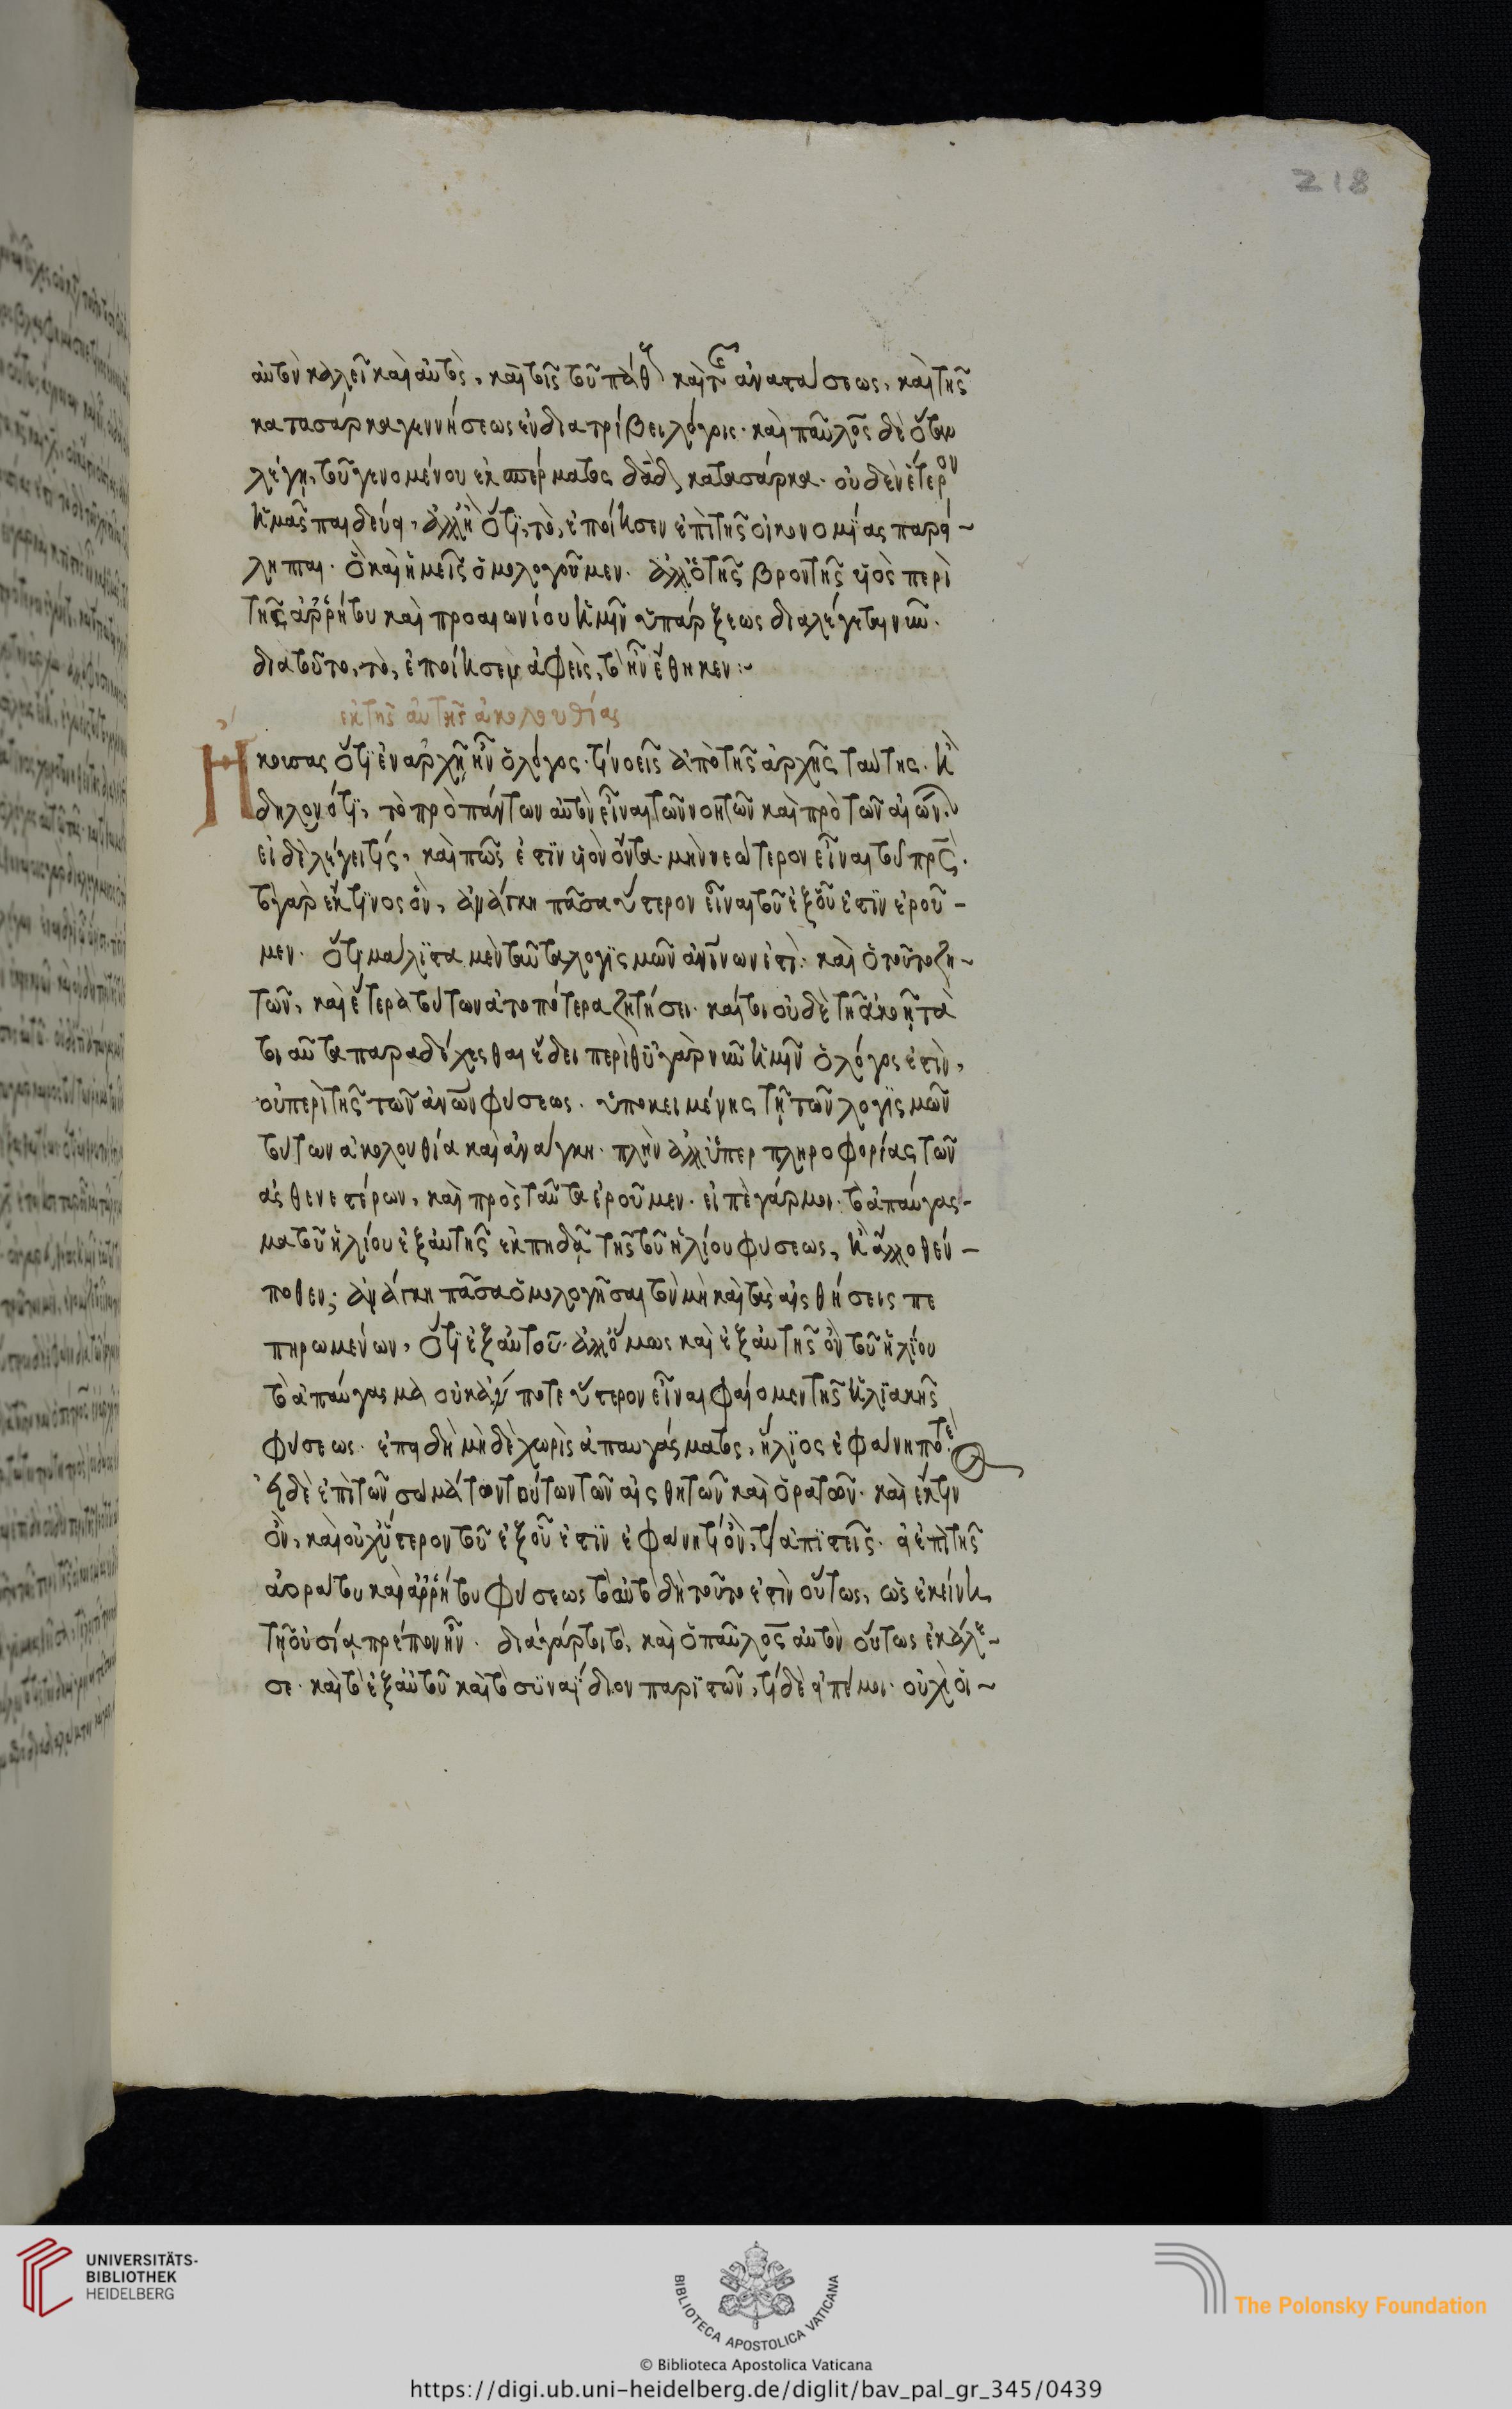 218
αὐτὸν καλεῖ καὶ αὐτὸς, καὶ τοῖς τοῦ πάθ καὶ τ ἀναστάσεως, καὶ τῆς
κατασάρκα γεννήσεως ἐνδιατρίβει λόγοις· καὶ παῦλος δὲ ὅταν
λέγη, τοῦ γενομένου ἐκ σπέρματος δαδ κατασάρκα· οὐδὲν ἕτερον
ἡμᾶς παιδεύει, ἀλλ' ἢ ὅτι, τὸ, ἐποίησεν ἐπὶ τῆς οἰκονομίας παρεί~
ληπται· ὃ καὶ ἡμεῖς ὁμολογοῦμεν· ἀλλ' ὁ τῆς βροντῆς υἱὸς περὶ
τῆς ἀρρήτου καὶ προαιωνίου ἡμῖν ὑπάρξεως διαλέγεται νῦν·
διατοῦτο, τὸ, ἐποίησεν ἀφεὶς, τὸ ἦν ἔθηκεν:~
ἐκ τῆς αὐτῆς ἀκολουθίας
Ἤκουσας ὅτι ἐν ἀρχῇ ἦν ὁ λόγος· τί νοεῖς ἀπὸ τῆς ἀρχῆς ταύτης· ἢ
δηλονότι, τὸ πρὸ πάντων αὐτὸν εἶναι τῶν νοητῶν καὶ πρὸ τῶν αἰών
εἰ δὲ λέγει τίς, καὶ πῶς ἐστὶν υἱὸν ὄντα· μὴ νεώτερον εἶναι τοῦ πρς·
τὸ γὰρ ἔκ τινος ὂν, ἀνάγκη πᾶσα ὕστερον εἶναι τοῦ ἐξ οὗ ἐστὶν ἐροῦ-
μεν· ὅτι μάλιστα μὲν ταῦτα λογισμῶν ἀνίνων ἐστὶ· καὶ ὁ τοῦτο ζη~
τῶν, καὶ ἕτερα τούτων ἀτοπότερα ζητήσει· καίτοι οὐδὲ τῇ ἀκοῇ τὰ
τοιαῦτα παραδέχεσθαι ἔδει περὶ θυ γὰρ νῦν ἡμῖν ὁ λόγος ἐστὶν,
οὐ περὶ τῆς τῶν ἀνων φύσεως· ὑποκειμένης τῇ τῶν λογισμῶν
τούτων ἀκολουθία καὶ ἀνάγκη· πλὴν ἀλλ' ὑπερ πληροφορίας τῶν
ἀσθενεστέρων, καὶ πρὸς ταῦτα ἐροῦμεν· εἰπὲ γάρ μοι· τὸ ἀπαύγασ-
μα τοῦ ἡλίου ἐξ αὐτῆς ἐκπηδᾷ τῆς τοῦ ἡλίου φύσεως, ἢ ἄλλοθέν-
ποθεν; ἀνάγκη πᾶσα ὁμολογῆσαι τὸν μὴ καὶ τὰς αἰσθήσεις πε
πηρωμένων, ὅτι ἐξ αὐτοῦ· ἀλλ' ὅμως καὶ ἐξ αὐτῆς ὂν τοῦ ἡλίου
τὸ ἀπαύγασμα οὐκ ἄν ποτε ὕστερον εἶναι φαίομεν τῆς ἡλιακῆς
φύσεως· ἐπειδὴ μὴ δὲ χωρὶς ἀπαυγάσματος, ἥλιος ἐφάνη ποτε
εἰ δὲ ἐπὶ τῶν σωμάτων τούτων τῶν αἰσθητῶν καὶ ὁρατῶν· καὶ ἔκ τιν
ὂν, καὶ οὐχ ὕστερον τοῦ ἐξ οὗ ἐστὶν ἐφάνη τί ὂν, τί ἀπιστεῖς· εἰ ἐπὶ τῆς
ἀοράτου καὶ ἀρρήτου φύσεως τὸ αὐτὸ δὴ τοῦτο ἐστὶν οὕτως, ὡς ἐκείνη
τῇ οὐσίᾳ πρέπον ἦν· διάγάρτοιτὸ, καὶ ὁ παῦλος αὐτὸν οὕτως ἐκάλε~
σε· καὶ τὸ ἐξ αὐτοῦ καὶ τὸ συναΐδιον παριστῶν, τί δὲ εἰπέ μοι· οὐχὶ οἱ~
UNIVERSITÄTS-
BIBLIOTHEK
HEIDELBERG
BIBLIOTECA APOSTOLICA VATICANA
The Polonsky Foundation
© Biblioteca Apostolica Vaticana
https://digi.ub.uni-heidelberg.de/diglit/bav_pal_gr_345/0439